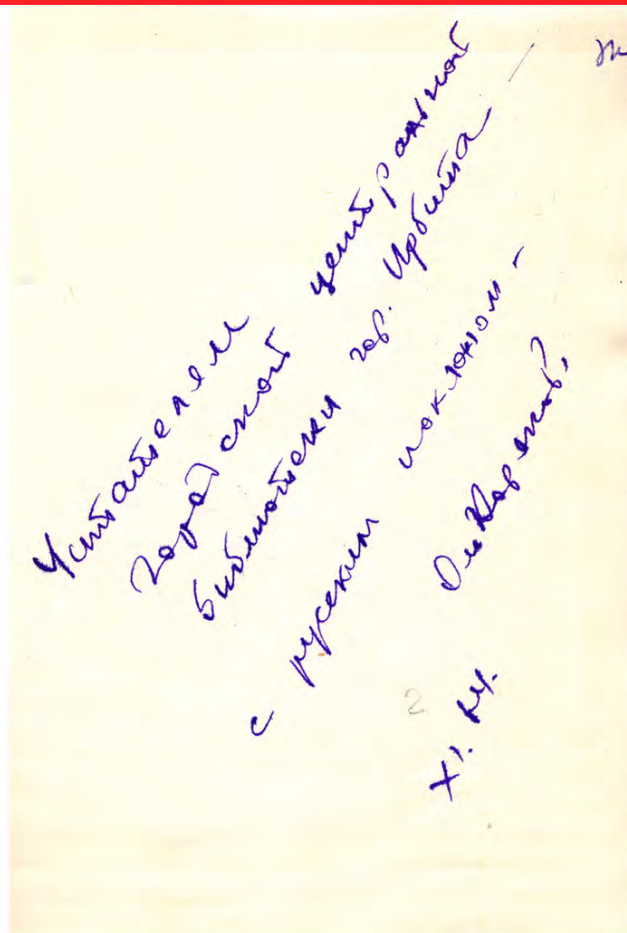 Читателям
городской центральной
библиотеки гор. Ирбита —
с русским поклоном —
XI.
2